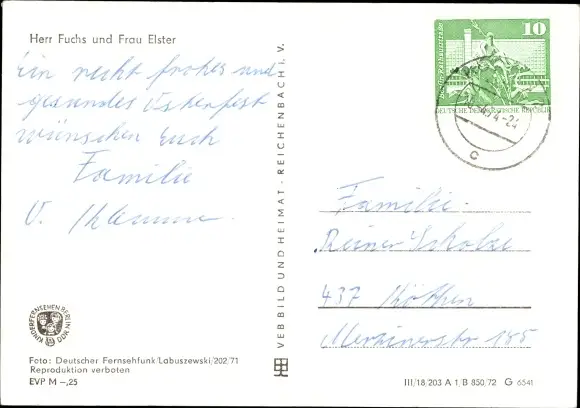 Herr Fuchs und Frau Elster
Ein recht frohes und
gesundes Osterfest
wünschen Euch
Familie
U.
KINDERFERNSEHEN BERLIN
DDR
Foto: Deutscher Fernsehfunk/Labuszewski/202/71
Reproduktion verboten
EVP M –,25
VEB BILD UND HEIMAT · REICHENBACH i. V.
10
DEUTSCHE DEMOKRATISCHE REPUBLIK
c
Familie
Reiner Scholze
437 Köthen
185
III/18/203 A 1/B 850/72 G 6541